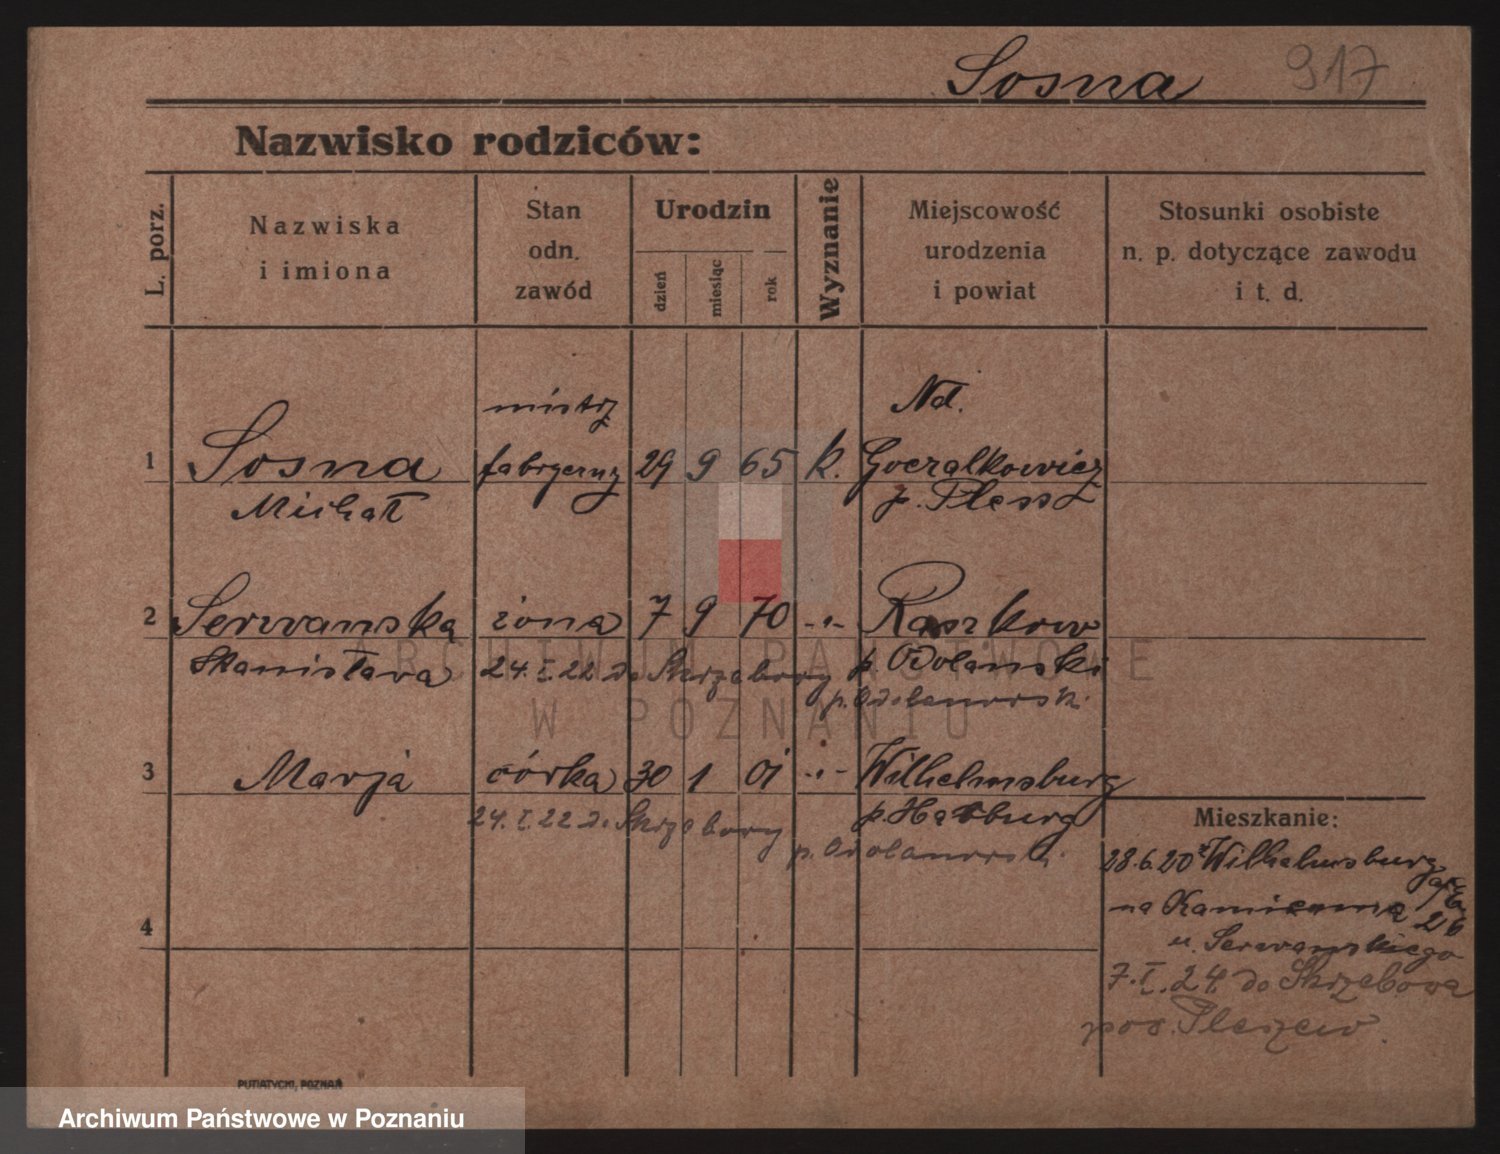 Sosna 917
Nazwisko rodziców:
L. porz.
Nazwiska
i imiona
Stan
odn.
zawód
Urodzin
dzień
miesiąc
rok
Wyznanie
Miejscowość
urodzenia
i powiat
Stosunki osobiste
n. p. dotyczące zawodu
i t. d.
mistrz Nd.
1 Sosna fabryczny 29 9 65 k. Goczalkowicz
Michał p. Pless
2 Serwanska żona 7 9 70 -"- Raszkow
Stanisława 24. I. 22 do Skrzebory p. Odolanski
p. Odolanowsk.
3 Marja córka 30 1 01 -"- Wilhelmsburg
24. I. 22 do Skrzebory p. Harburg
p. Odolanowsk.
4
Mieszkanie:
28.6.20 z Wilhelmsburg
na Kamienną 26
u. Serwanskiego
7. I. 24. do Skrzebowa
pow. Pleszew.
PUTIATYCKI, POZNAŃ
ARCHIWUM PAŃSTWOWE
W POZNANIU
Archiwum Państwowe w Poznaniu